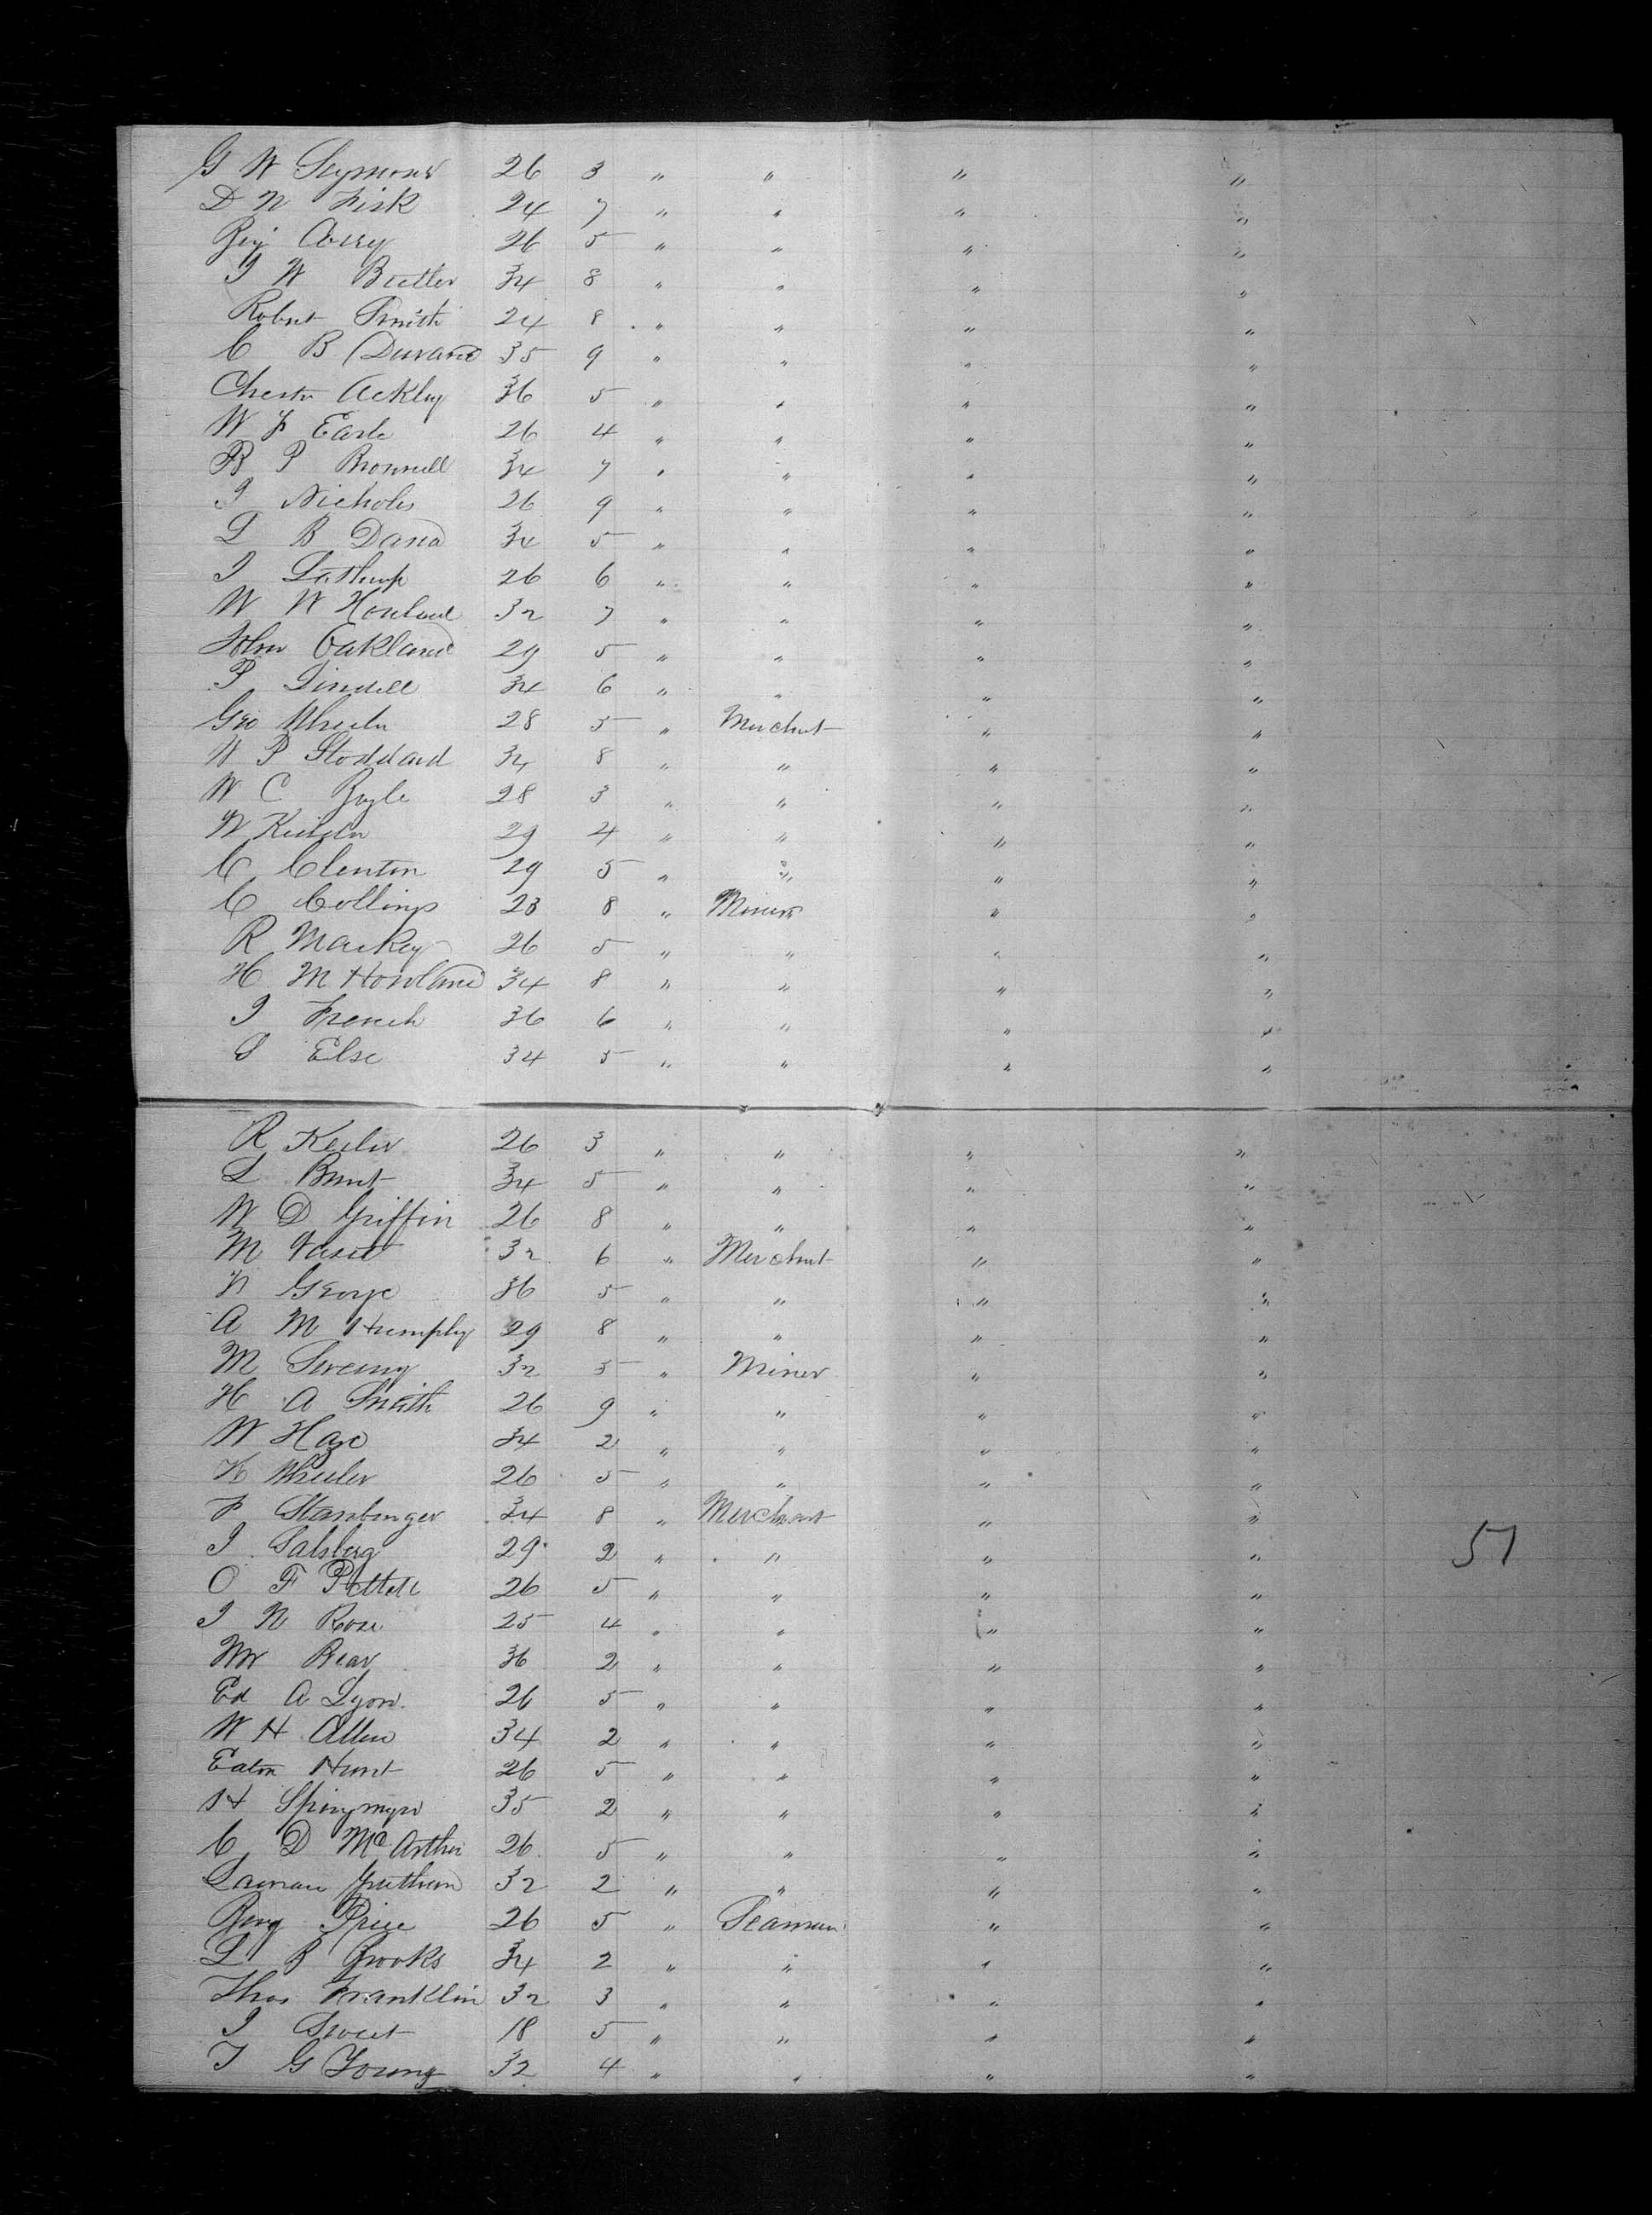 G W Seymour 26 3 " " " "
D N Fisk 24 7 " " " "
Benj Corey 26 5 " " " "
J W Butler 34 8 " " " "
Robert Smith 24 8 " " " "
C B Durand 35 9 " " " "
Chester Ackley 36 5 " " " "
W F Earle 26 4 " " " "
B P Brownell 34 7 " " " "
J Nichols 26 9 " " " "
L B Dana 34 5 " " " "
J Lathrup 26 6 " " " "
W W Howland 32 7 " " " "
John Oakland 29 5 " " " "
P 34 6 " " " "
Geo Wheeler 28 5 " Merchant " "
W P Stoddard 34 8 " " " "
W C 28 3 " " " "
W 29 4 " " " "
C Clenton 29 5 " " " "
C Collings 23 8 " Miner " "
R Mackey 26 5 " " " "
H M Howland 34 8 " " " "
J French 36 6 " " " "
S Else 34 5 " " " "
R Keeler 26 3 " " " "
L 34 5 " " " "
W D Griffin 26 8 " " " "
M 32 6 " Merchant " "
N George 36 5 " " " "
A M Humphy 29 8 " " " "
M Sweeny 32 5 " Miner " "
H A Smith 26 9 " " " "
W 34 2 " " " "
H Wheeler 26 5 " " " "
F 34 8 " Merchant " "
J Salsberg 29 2 " " " "
O F 26 5 " " " "
J N Rose 25 4 " " " "
Wm Bear 36 2 " " " "
Ed A Lyon 26 5 " " " "
W H Allen 34 2 " " " "
Eaton Hunt 26 5 " " " "
H 35 2 " " " "
C D McArthur 26 5 " " " "
32 2 " " " "
Benj Price 26 5 " Seaman " "
L B Brooks 34 2 " " " "
Thos Franklin 32 3 " " " "
J Sweet 18 5 " " " "
T G Young 32 4 " " " "
51